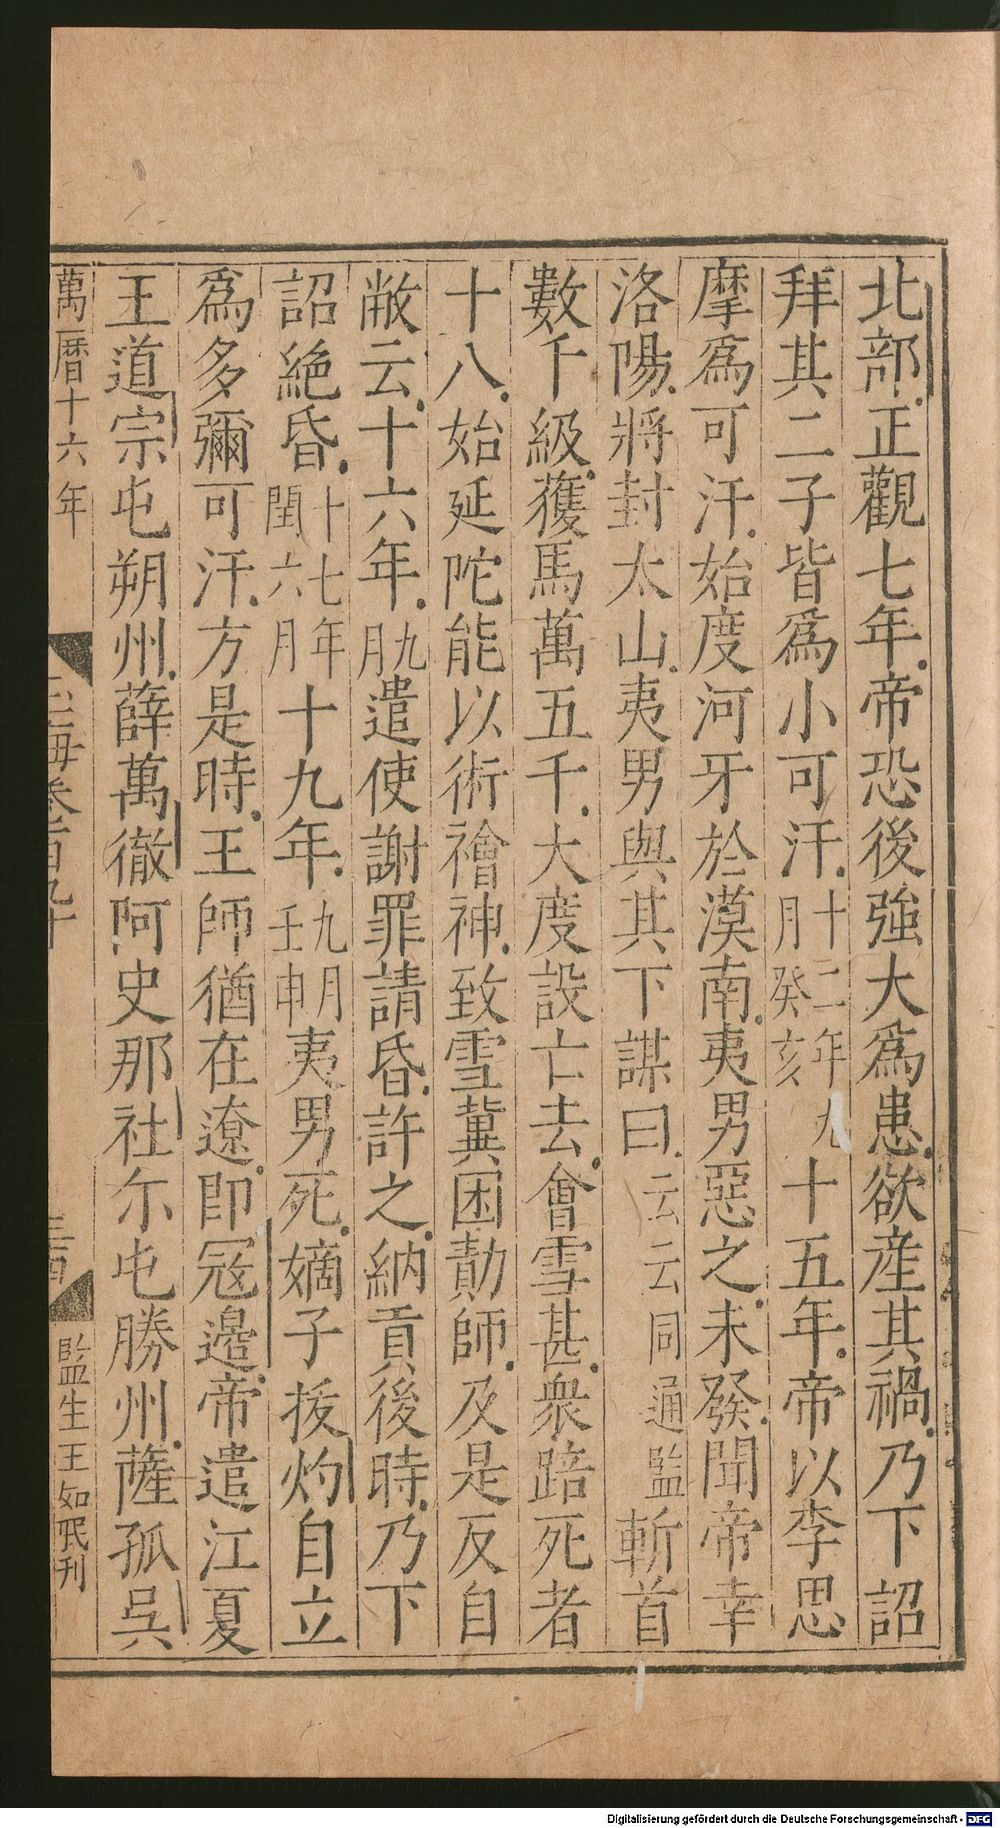 北部正觀七年帝恐後強大爲患欲産其禍乃下詔
拜其二子皆爲小可汗十二年九月癸亥十五年帝以李思
摩爲可汗始度河牙於漠南夷男惡之未發聞帝幸
洛陽將封太山夷男與其下謀曰云云同通監斬首
數千級獲馬萬五千大度設亡去會雪甚衆踣死者
十八始延陀能以術禬神致雪冀困勣師及是反自
敝云十六年九月遣使謝罪請昏許之納貢後時乃下
詔絶昏十七年閏六月十九年九月壬申夷男死嫡子拔灼自立
爲多彌可汗方是時王師猶在遼即冦邉帝遣江夏
王道宗屯朔州薛萬徹阿史那社尒屯勝州薩孤吳
萬曆十六年
玉海卷一百九十
監生王如珉刊
Digitalisierung gefördert durch die Deutsche Forschungsgemeinschaft - DFG